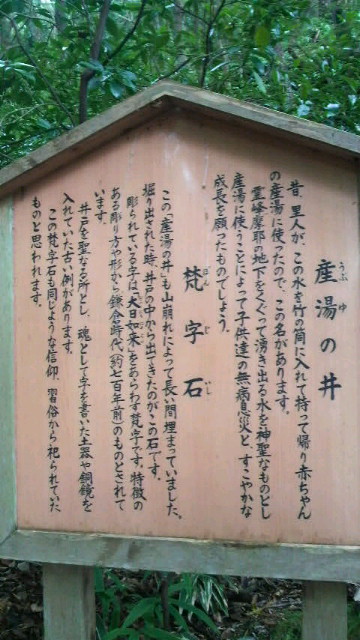 産湯の井
うぶゆ
昔、里人が、この水を竹の筒に入れて持って帰り赤ちゃん
の産湯に使ったので、この名があります。
霊峰摩耶の地下をくぐって湧き出る水を神聖なものとし
産湯に使うことによって子供達の無病息災と、すこやかな
成長を願ったものでしょう。
梵字石
ぼんじいし
この「産湯の井」も山崩れによって長い間埋まっていました。
掘り出された時、井戸の中から出てきたのがこの石です。
彫られている字は、「大日如来」をあらわす梵字です。特徴の
ある彫り方や形から鎌倉時代(約七百年前)のものとされて
います。
井戸を聖なる所とし、魂として字を書いた土器や銅鏡を
入れていた古い例があります。
この梵字石も同じような信仰、習俗から祀られていた
ものと思われます。